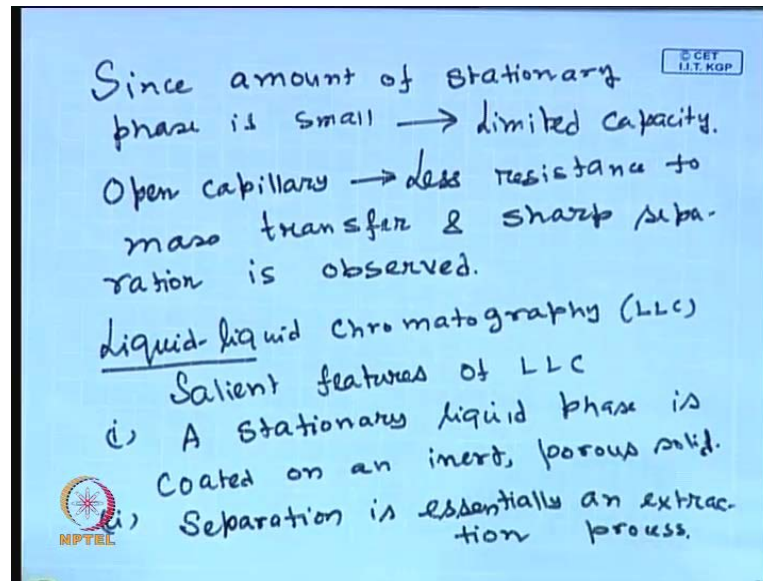 © CET
I.I.T. KGP
Since amount of stationary
phase is small → Limited capacity.
Open capillary → Less resistance to
mass transfer & sharp sepa-
ration is observed.
Liquid-liquid Chromatography (LLC)
Salient features of LLC
i) A stationary liquid phase is
coated on an inert, porous solid.
ii) Separation is essentially an extrac-
tion process.
NPTEL